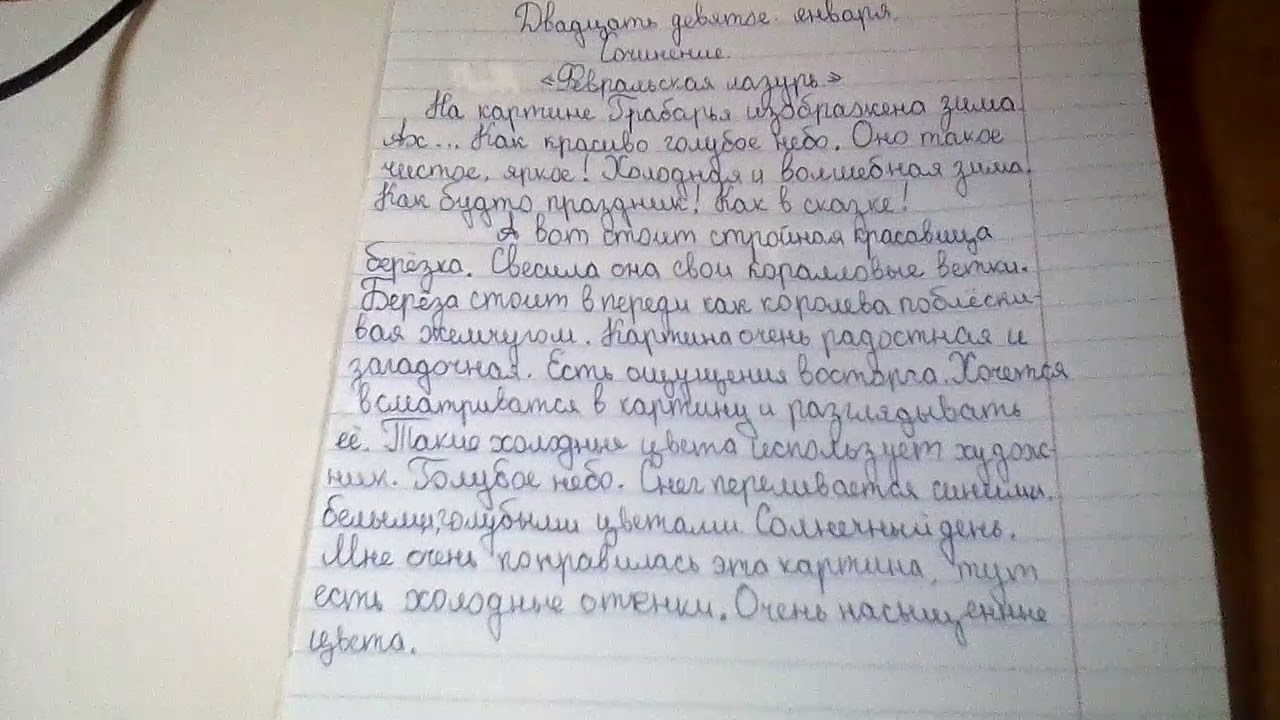 Двадцать девятое января.
Сочинение.
«Февральская лазурь»
На картине Грабарья изображена зима
Ах... Как красиво голубое небо. Оно такое
чистое, яркое! Холодная и волшебная зима.
Как будто праздник! Как в сказке!
А вот стоит стройная красавица
берёзка. Свесила она свои коралловые ветки.
Берёза стоит в переди как королева поблёски-
вая жемчугом. Картина очень радостная и
загадочная. Есть ощущения восторга. Хочется
всматриватся в картину и разглядывать
её. Такие холодные цвета использует худож-
ник. Голубое небо. Снег переливается синими,
белыми, голубыми цветами. Солнечный день.
Мне очень понравилась эта картина, тут
есть холодные оттенки. Очень насыщенные
цвета.